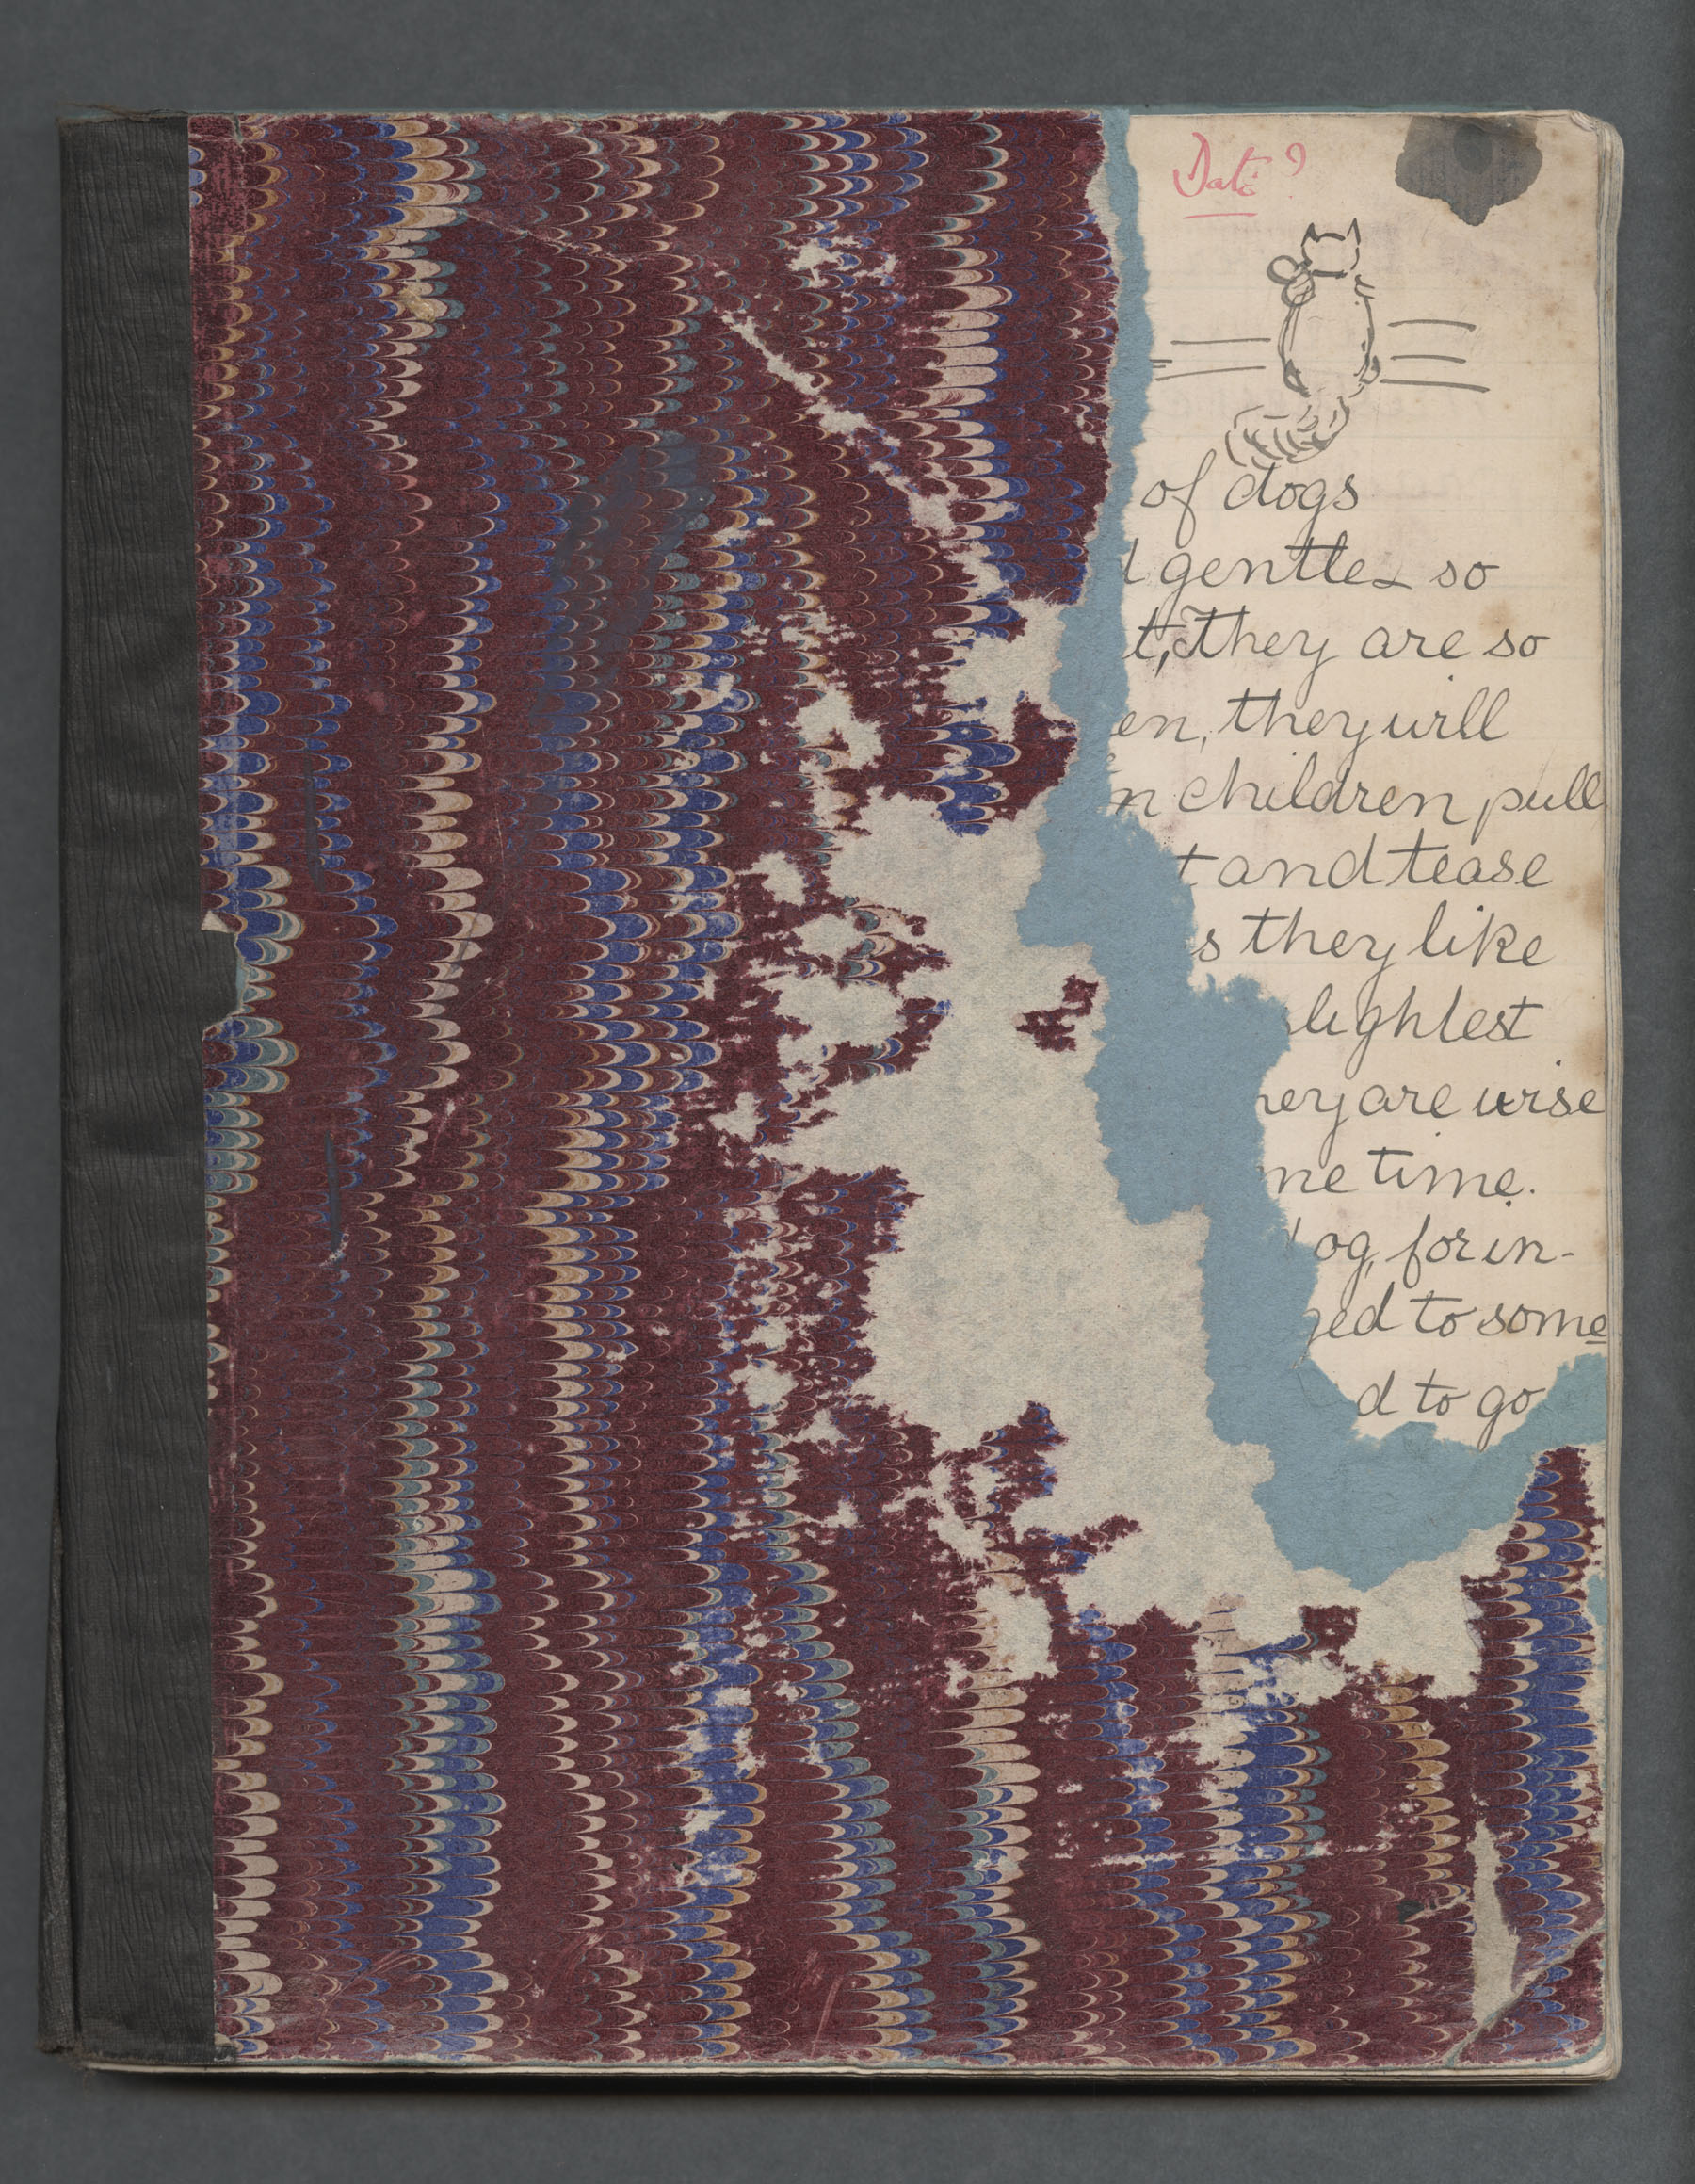 Date?
of dogs
gentle & so
t, They are so
en, they will
n children pull
t and tease
s they like
lightest
hey are wise
me time.
og, for in-
ged to some
d to go